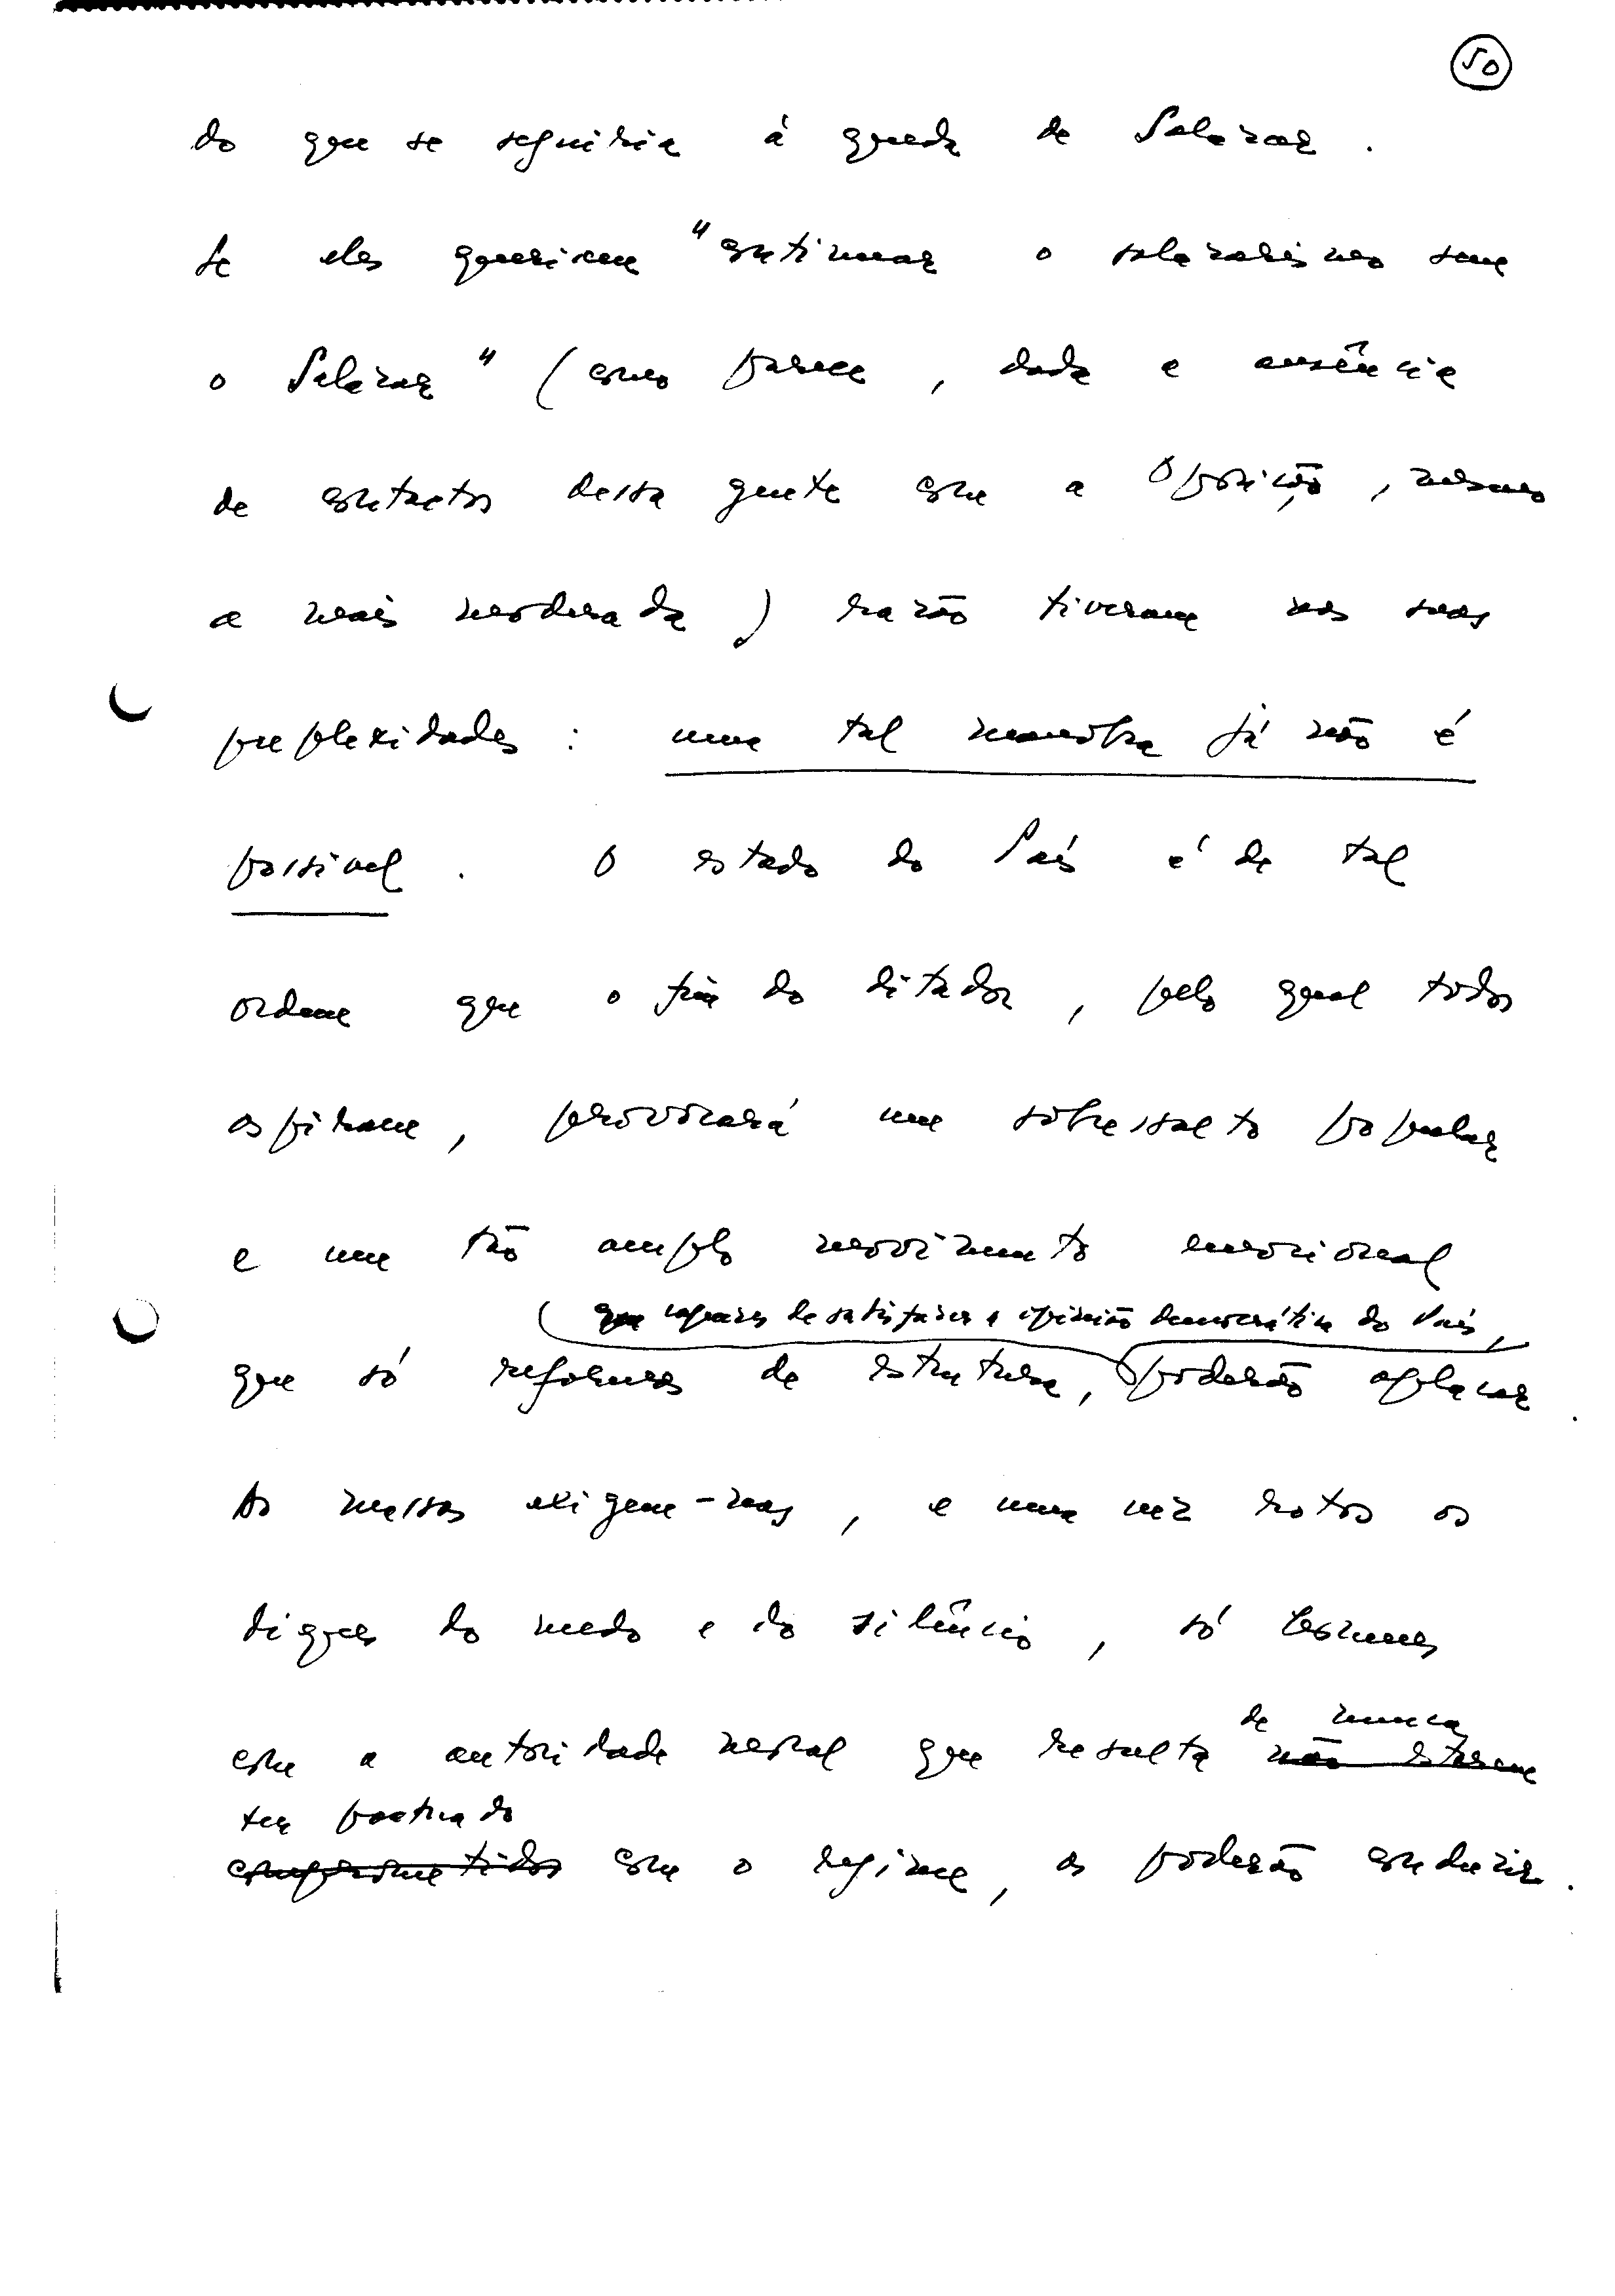 50
do que se seguiria à queda de Salazar.
Se eles queriam "continuar o salazarismo sem
o Salazar" (como parece, dada a ausência
de contactos dessa gente com a Oposição, mesmo
a mais moderada) razão tiveram nas suas
perplexidades: uma tal manobra já não é
possível. O estado do País é de tal
ordem que o fim do ditador, pelo qual todos
aspiram, provocará um sobressalto popular
e um tão amplo movimento emocional
que capazes de satisfazer a opinião democrática do País,
que só reformas de estrutura, poderão aplacar.
As massas exigem-nas, e uma vez rotos os
diques do medo e do silêncio, só homens
de nunca
com a autoridade moral que resulta não estarem
ter pactuado
comprometidos com o regime, as poderão conduzir.